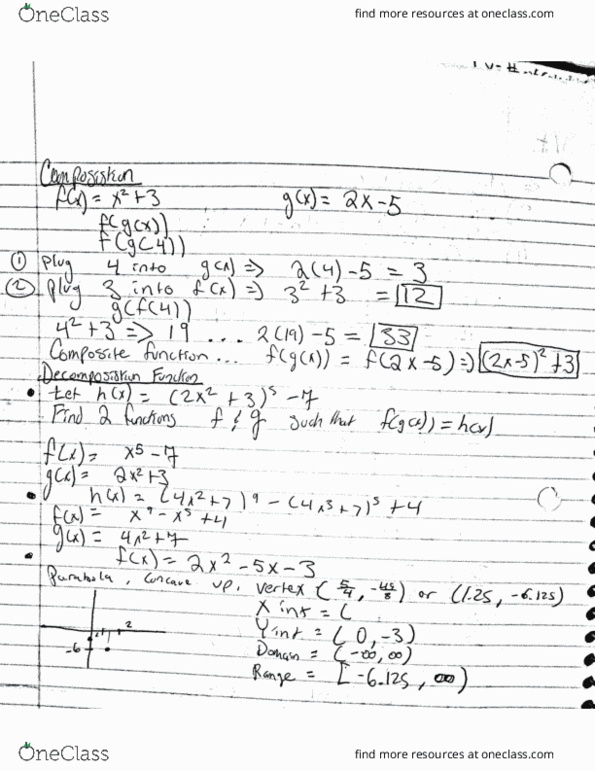 OneClass
find more resources at oneclass.com
Composistion
f(x) = x² + 3 g(x) = 2x - 5
f(g(x))
f(g(4))
① plug 4 into g(x) => 2(4) - 5 = 3
② plug 3 into f(x) => 3² + 3 = 12
g(f(4))
4² + 3 => 19 ... 2(19) - 5 = 33
Composite function ... f(g(x)) = f(2x - 5) => (2x - 5)² + 3
Decomposistion Function
• Let h(x) = (2x² + 3)⁵ - 7
Find 2 functions f & g such that f(g(x)) = h(x)
f(x) = x⁵ - 7
g(x) = 2x² + 3
• h(x) = (4x² + 7)⁹ - (4x³ + 7)⁵ + 4
f(x) = x⁹ - x⁵ + 4
g(x) = 4x² + 7
• f(x) = 2x² - 5x - 3
Parabola, concave up, vertex (5/4, -45/8) or (1.25, -6.125)
X int = (
Y int = (0, -3)
Domain = (-∞, ∞)
Range = [-6.125, ∞)
2
-6
OneClass
find more resources at oneclass.com